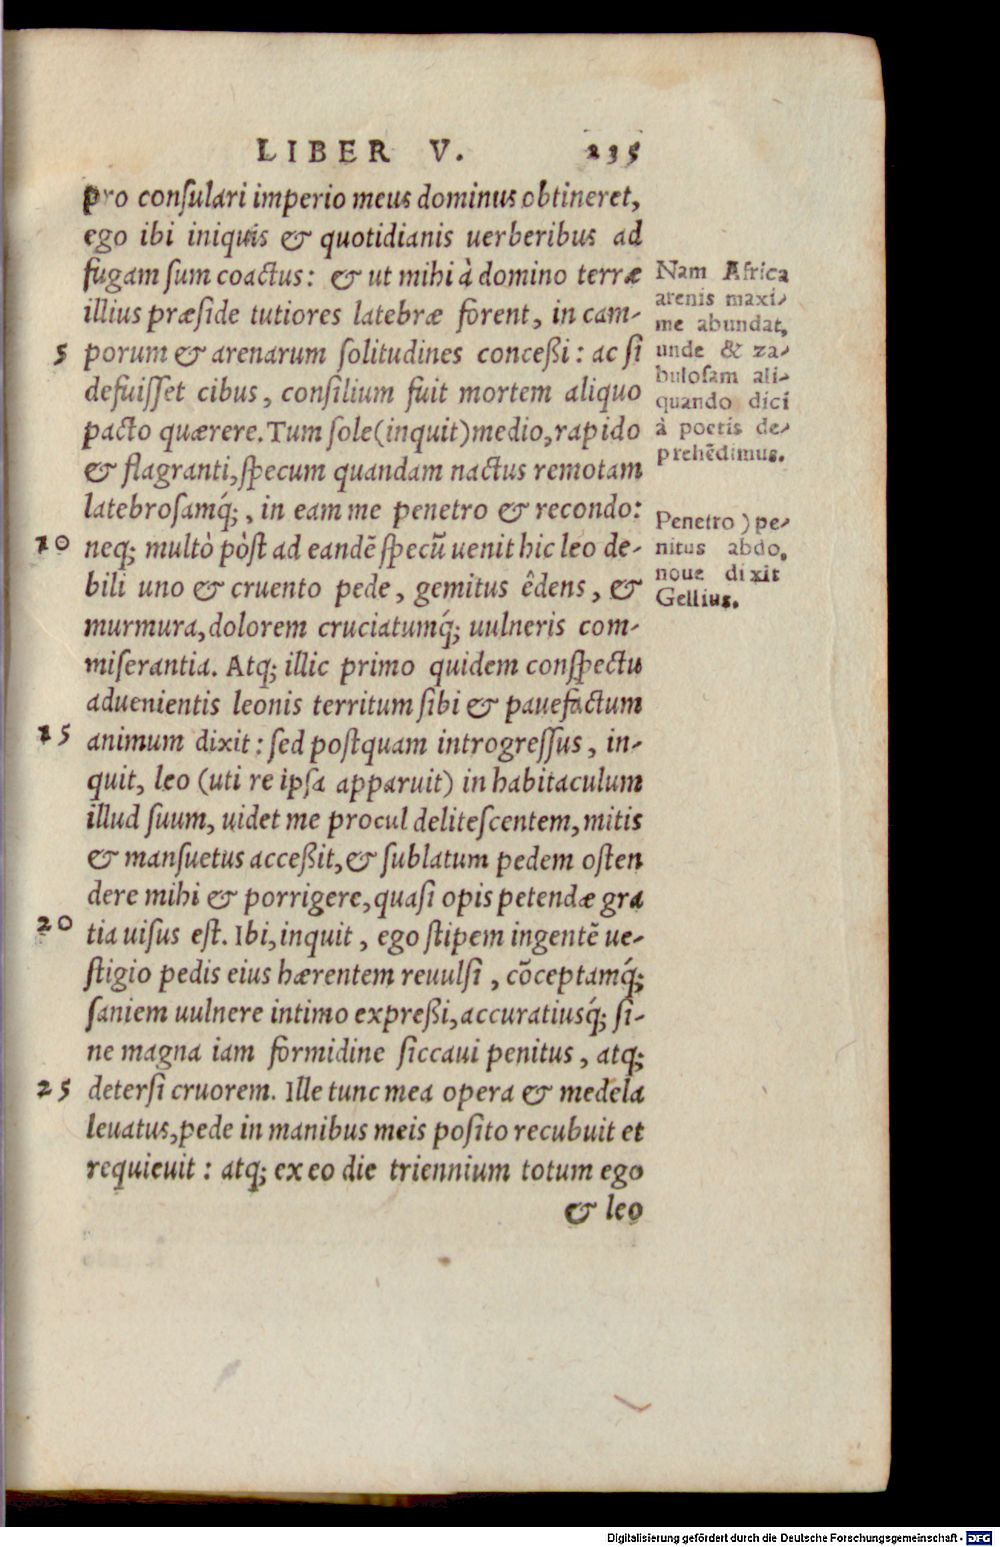 LIBER V. 235
pro consulari imperio meus dominus obtineret,
ego ibi iniquis & quotidianis uerberibus ad
fugam sum coactus: & ut mihi à domino terræ
illius præside tutiores latebræ forent, in cam-
5 porum & arenarum solitudines conceßi: ac si
defuisset cibus, consilium fuit mortem aliquo
pacto quærere. Tum sole (inquit) medio, rapido
& flagranti, specum quandam nactus remotam
latebrosamq́;, in eam me penetro & recondo:
10 neq; multò pòst ad eandē specū uenit hic leo de-
bili uno & cruento pede, gemitus êdens, &
murmura, dolorem cruciatumq́; uulneris com-
miserantia. Atq; illic primo quidem conspectu
aduenientis leonis territum sibi & pauefactum
15 animum dixit: sed postquam introgressus, in-
quit, leo (uti re ipsa apparuit) in habitaculum
illud suum, uidet me procul delitescentem, mitis
& mansuetus acceßit, & sublatum pedem osten
dere mihi & porrigere, quasi opis petendæ gra
20 tia uisus est. Ibi, inquit, ego stipem ingentē ue-
stigio pedis eius hærentem reuulsi, cōceptamq́;
saniem uulnere intimo expreßi, accuratiusq́; si-
ne magna iam formidine siccaui penitus, atq;
25 detersi cruorem. Ille tunc mea opera & medela
leuatus, pede in manibus meis posito recubuit et
requieuit: atq; ex eo die triennium totum ego
& leo
Nam Africa
arenis maxi-
me abundat,
unde & za-
bulosam ali-
quando dici
à poetis de-
prehēdimus.
Penetro) pe-
nitus abdo,
noue dixit
Gellius.
Digitalisierung gefördert durch die Deutsche Forschungsgemeinschaft - DFG